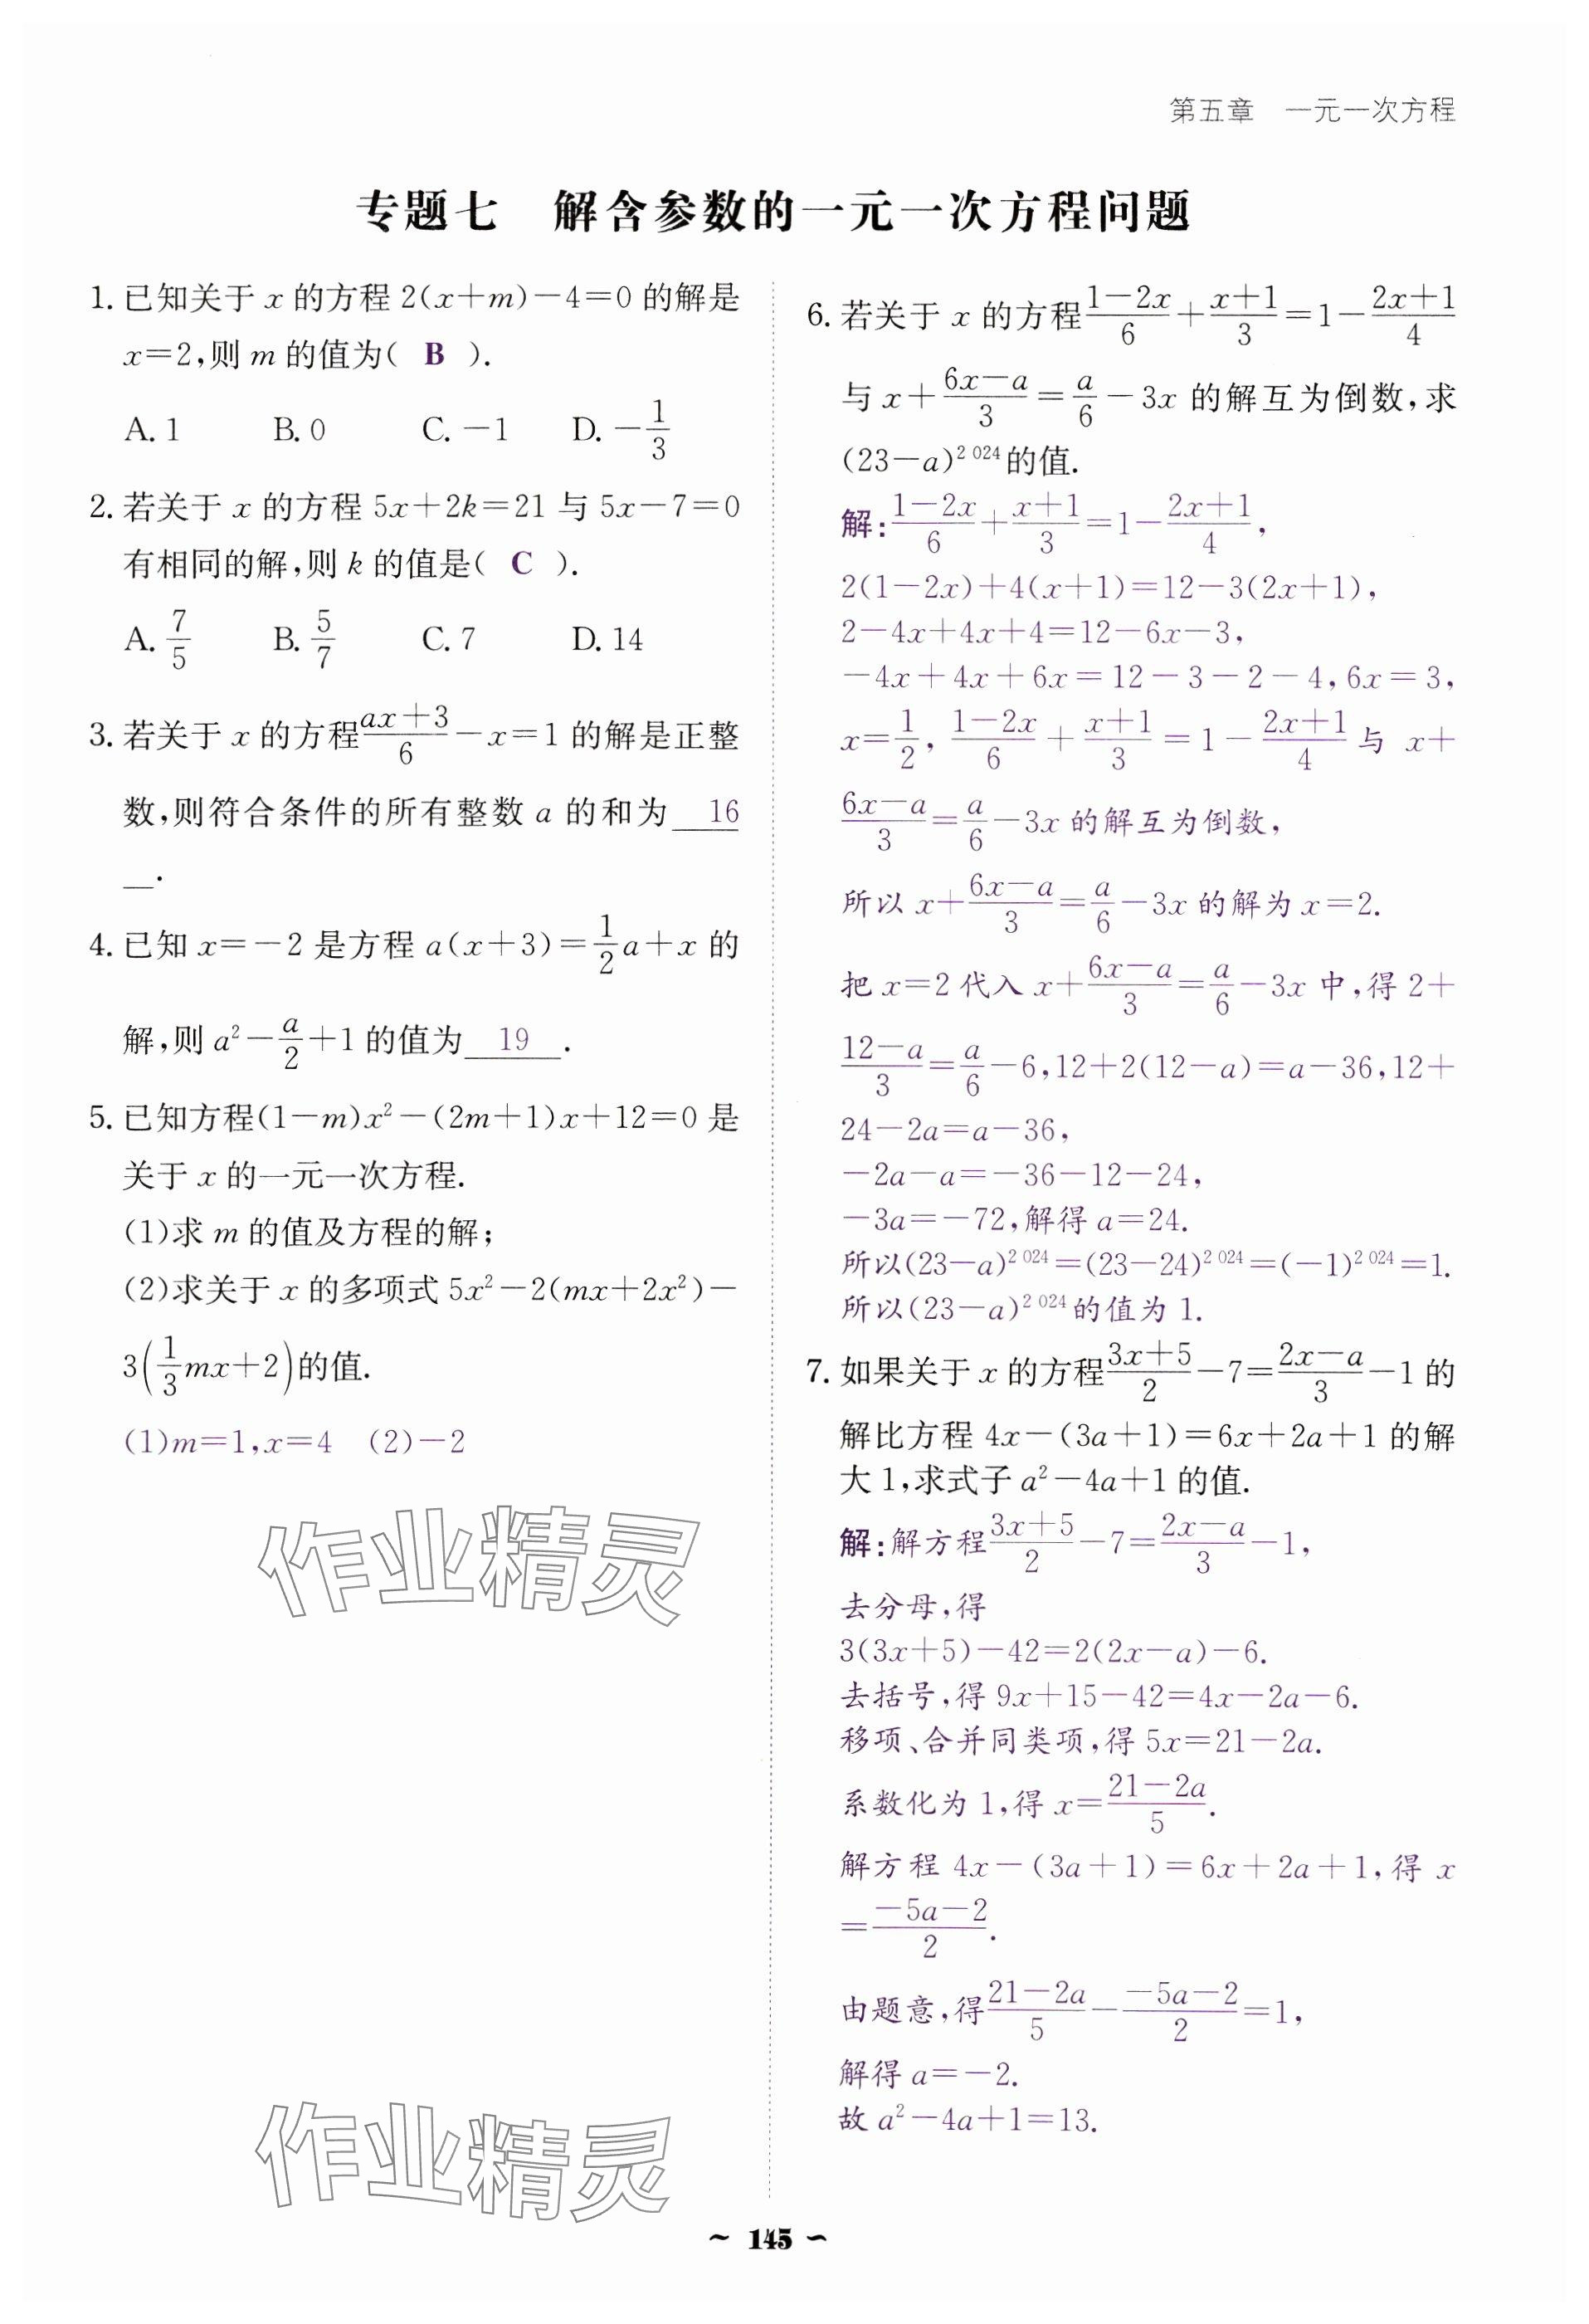 第五章　一元一次方程
专题七　解含参数的一元一次方程问题
1. 已知关于 x 的方程 2(x+m)-4=0 的解是
x=2,则 m 的值为( B ).
A. 1　B. 0　C. -1　D. -1/3
2. 若关于 x 的方程 5x+2k=21 与 5x-7=0
有相同的解,则 k 的值是( C ).
A. 7/5　B. 5/7　C. 7　D. 14
3. 若关于 x 的方程 (ax+3)/6-x=1 的解是正整
数,则符合条件的所有整数 a 的和为 16
.
4. 已知 x=-2 是方程 a(x+3)=1/2a+x 的
解,则 a²-a/2+1 的值为 19 .
5. 已知方程(1-m)x²-(2m+1)x+12=0 是
关于 x 的一元一次方程.
(1)求 m 的值及方程的解;
(2)求关于 x 的多项式 5x²-2(mx+2x²)-
3(1/3mx+2)的值.
(1)m=1,x=4　(2)-2
作业精灵
作业精灵
6. 若关于 x 的方程 (1-2x)/6+(x+1)/3=1-(2x+1)/4
与 x+(6x-a)/3=a/6-3x 的解互为倒数,求
(23-a)²⁰²⁴的值.
解:(1-2x)/6+(x+1)/3=1-(2x+1)/4,
2(1-2x)+4(x+1)=12-3(2x+1),
2-4x+4x+4=12-6x-3,
-4x+4x+6x=12-3-2-4,6x=3,
x=1/2,(1-2x)/6+(x+1)/3=1-(2x+1)/4 与 x+
(6x-a)/3=a/6-3x 的解互为倒数,
所以 x+(6x-a)/3=a/6-3x 的解为 x=2.
把 x=2 代入 x+(6x-a)/3=a/6-3x 中,得 2+
(12-a)/3=a/6-6,12+2(12-a)=a-36,12+
24-2a=a-36,
-2a-a=-36-12-24,
-3a=-72,解得 a=24.
所以(23-a)²⁰²⁴=(23-24)²⁰²⁴=(-1)²⁰²⁴=1.
所以(23-a)²⁰²⁴的值为 1.
7. 如果关于 x 的方程 (3x+5)/2-7=(2x-a)/3-1 的
解比方程 4x-(3a+1)=6x+2a+1 的解
大 1,求式子 a²-4a+1 的值.
解:解方程 (3x+5)/2-7=(2x-a)/3-1,
去分母,得
3(3x+5)-42=2(2x-a)-6.
去括号,得 9x+15-42=4x-2a-6.
移项、合并同类项,得 5x=21-2a.
系数化为 1,得 x=(21-2a)/5.
解方程 4x-(3a+1)=6x+2a+1,得 x
=(-5a-2)/2.
由题意,得 (21-2a)/5-(-5a-2)/2=1,
解得 a=-2.
故 a²-4a+1=13.
~ 145 ~